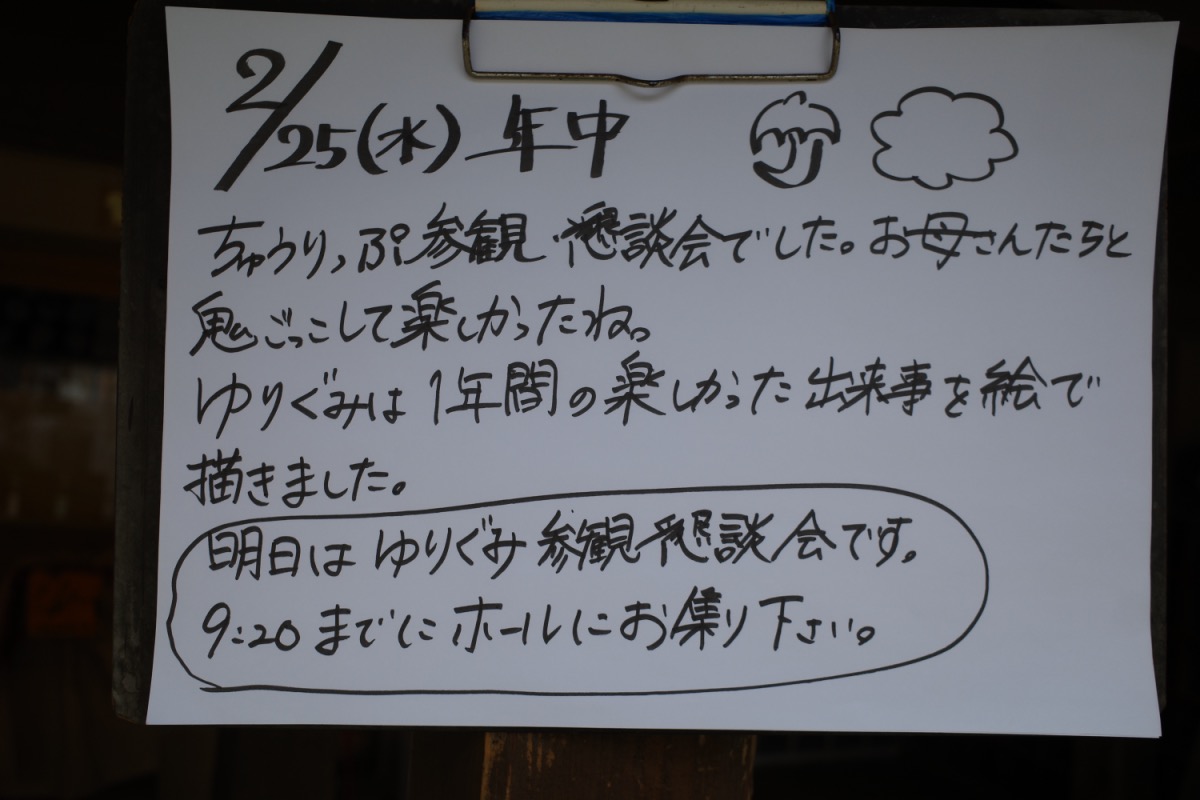 2/25(水) 年中
ちゅうりっぷ参観 懇談会でした。お母さんたちと
鬼ごっこして楽しかったね。
ゆりぐみは 1年間の楽しかった出来事を絵で
描きました。
明日は ゆりぐみ 参観 懇談会です。
9:20までにホールにお集り下さい。